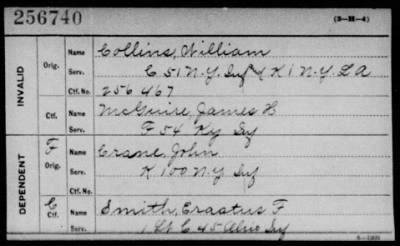 256740
(3-H-4)
INVALID
Orig.
Name Collins, William
Serv. C 51 N.Y. Inf & K 1 N.Y. L A
Ctf. No. 256 467
Ctf.
Name McGuire, James H
Serv. F 54 Ky Inf
DEPENDENT
F
Orig.
Name Crane, John
Serv. K 100 N.Y. Inf
Ctf. No.
C
Ctf.
Name Smith, Erastus F
Serv. 1 Lt C 45 Ohio Inf